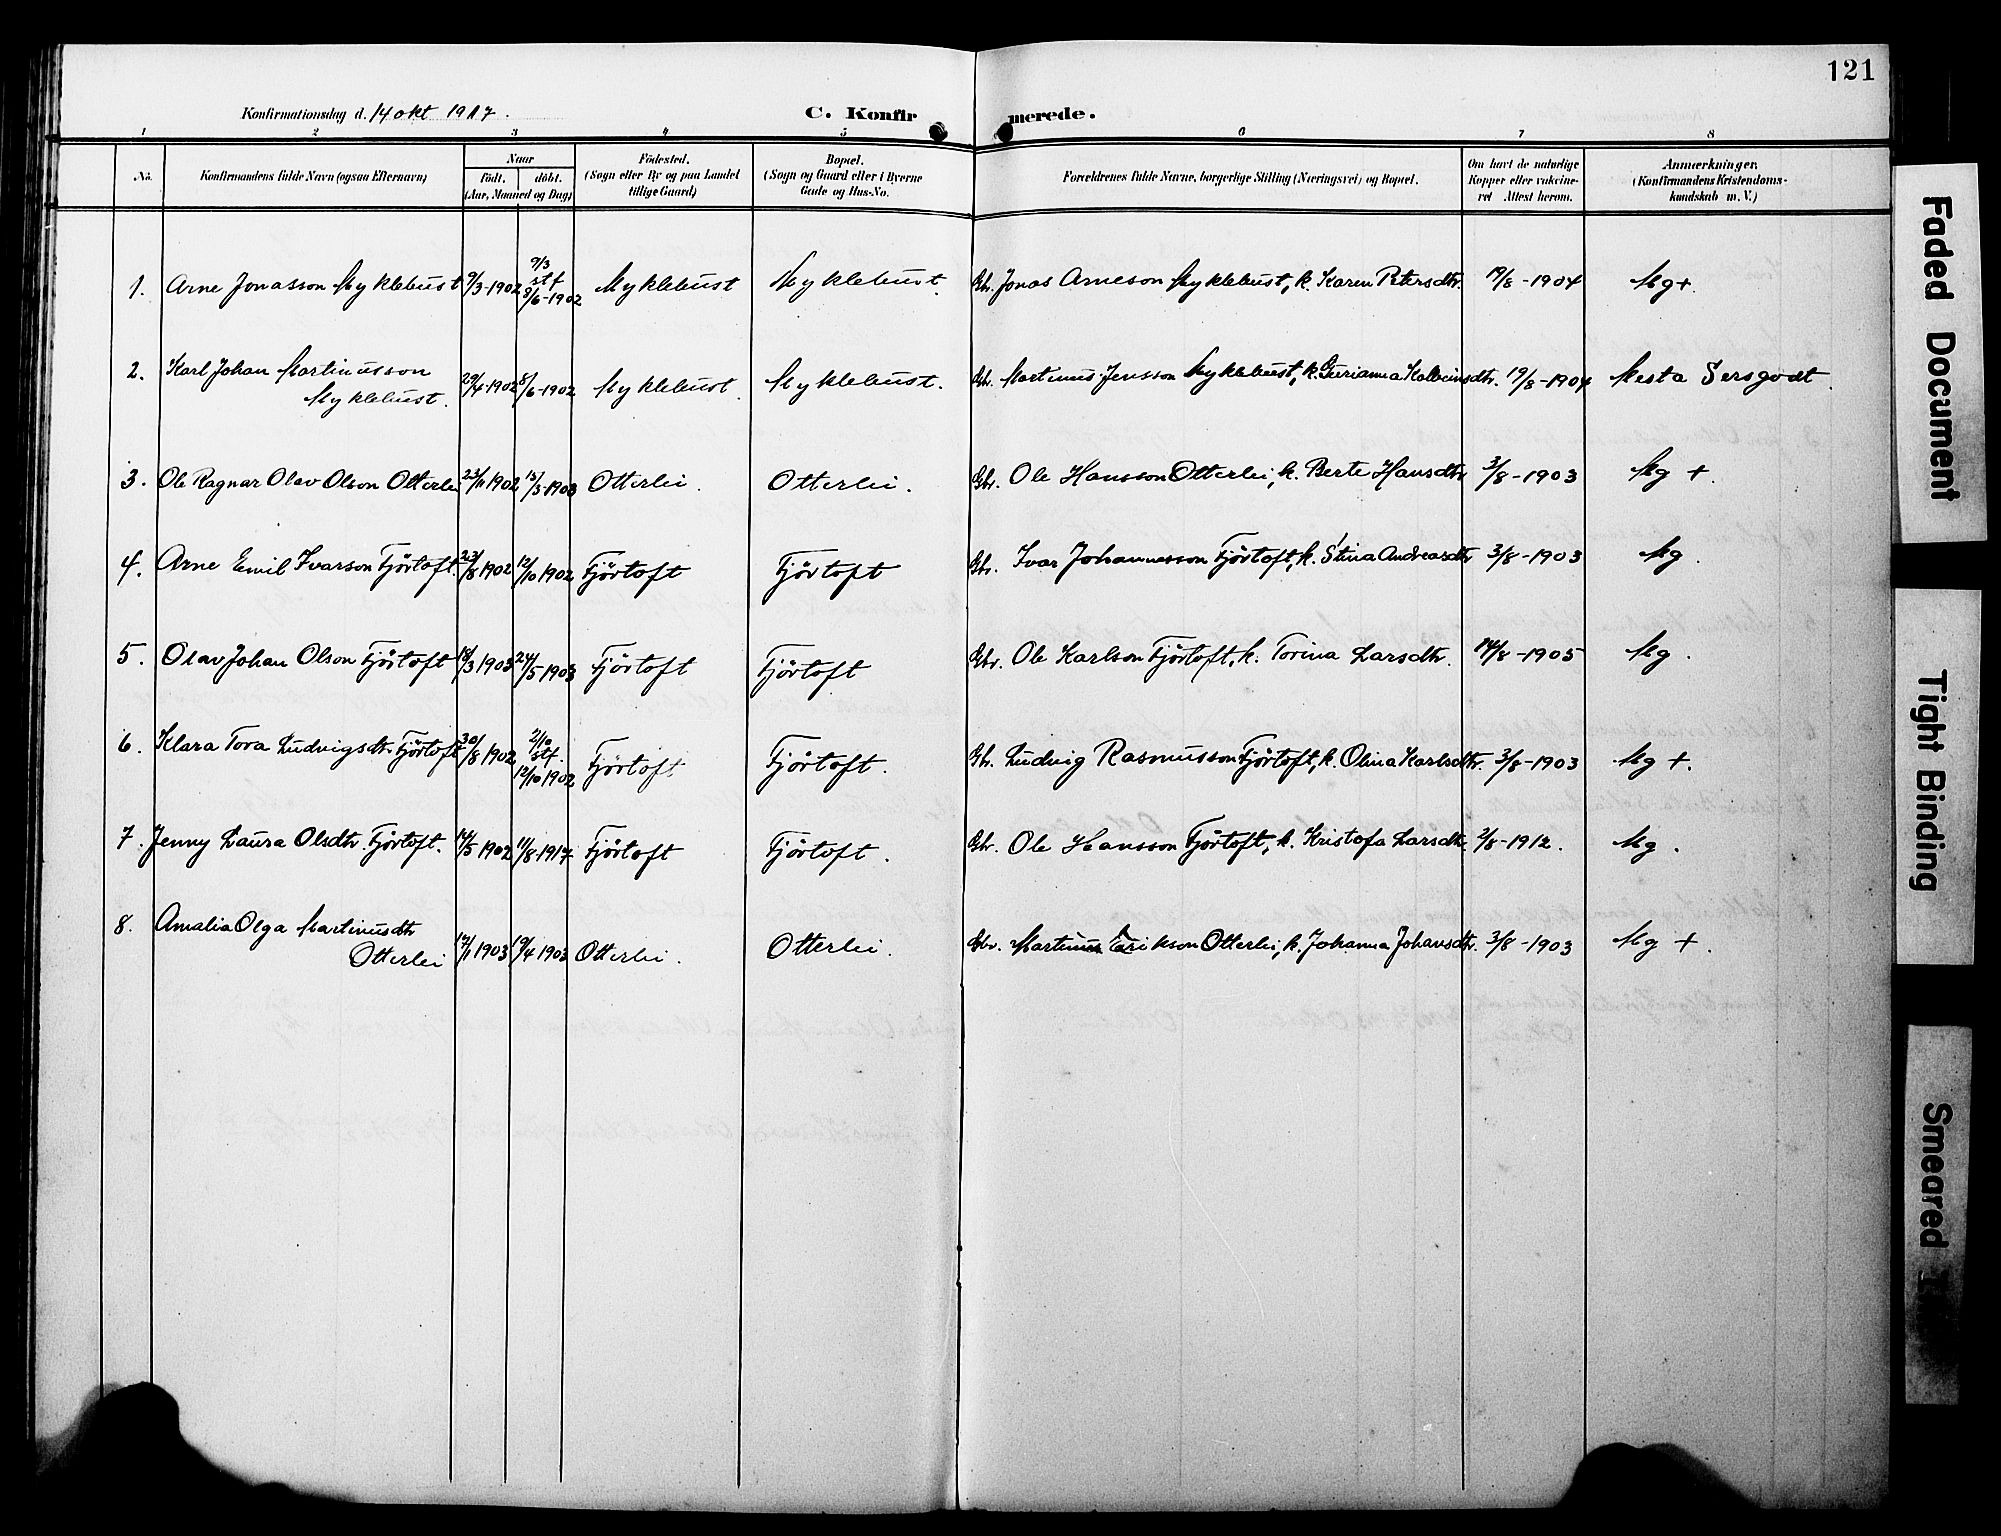 121
Konfirmationsdag d. 14 okt 1917.
C. Konfirmerede.
1 2 3 4 5 6 7 8
No. Konfirmandens fulde Navn (ogsaa Efternavn) Naar født. døbt. (Aar, Maaned og Dag) Fødested. (Sogn eller By og paa Landet tillige Gaard) Bopæl. (Sogn og Gaard eller i Byerne Gade og Hus-No. Forældrenes fulde Navne, borgerlige Stilling (Næringsvei) og Bopæl. Om havt de naturlige Kopper eller vakcineret Attest herom. Anmærkninger. (Konfirmandens Kristendomskundskab m. V.)
1. Arne Jonasson Myklebust 9/3-1902 9/3 st f 8/6-1902 Myklebust Myklebust. Gbr. Jonas Arneson Myklebust, k. Karen Petersdtr. 19/8-1904 Mg +
2. Karl Johan Martinusson Myklebust. 29/4-1902 8/6-1902 Myklebust. Myklebust. Gbr. Martinus Jensson Myklebust, k. Gurianna Kolbeinsdtr. 19/8-1904 Mesta Sersgodt.
3. Ole Ragnar Olav Olson Otterlei 23/11 1902 15/3-1903 Otterlei. Otterlei. Gbr. Ole Hansson Otterlei, k. Berte Hansdtr 3/8-1903 Mg +.
4. Arne Emil Ivarson Fjörtoft. 23/8 1902 12/10 1902 Fjörtoft Fjörtoft Gbr. Ivar Johannesson Fjörtoft, k. Stina Andreasdtr 3/8-1903 Mg.
5. Olav Johan Olson Fjörtoft 18/3 1903 24/5-1903 Fjörtoft Fjörtoft Gbr. Ole Karlson Fjörtoft, k. Torina Larsdtr. 14/8-1905 Mg.
6. Klara Tora Ludvigsdtr. Fjörtoft 30/8 1902 2/10 st f. 12/10 1902 Fjörtoft Fjörtoft. Gbr. Ludvig Rasmusson Fjörtoft, k. Olina Karlsdtr. 3/8-1903 Mg +.
7. Jenny Laura Olsdtr. Fjörtoft. 14/5 1902 11/8-1917. Fjörtoft Fjörtoft. Gbr. Ole Hansson Fjörtoft, k. Kristofa Larsdtr. 2/8-1912. Mg.
8. Amalia Olga Martinusdtr Otterlei 17/1 1903 19/4 1903 Otterlei. Otterlei. Gbr. Martinus Erikson Otterlei, k. Johanna Johansdtr. 3/8-1903 Mg +.
Faded Document
Tight Binding
Smeared